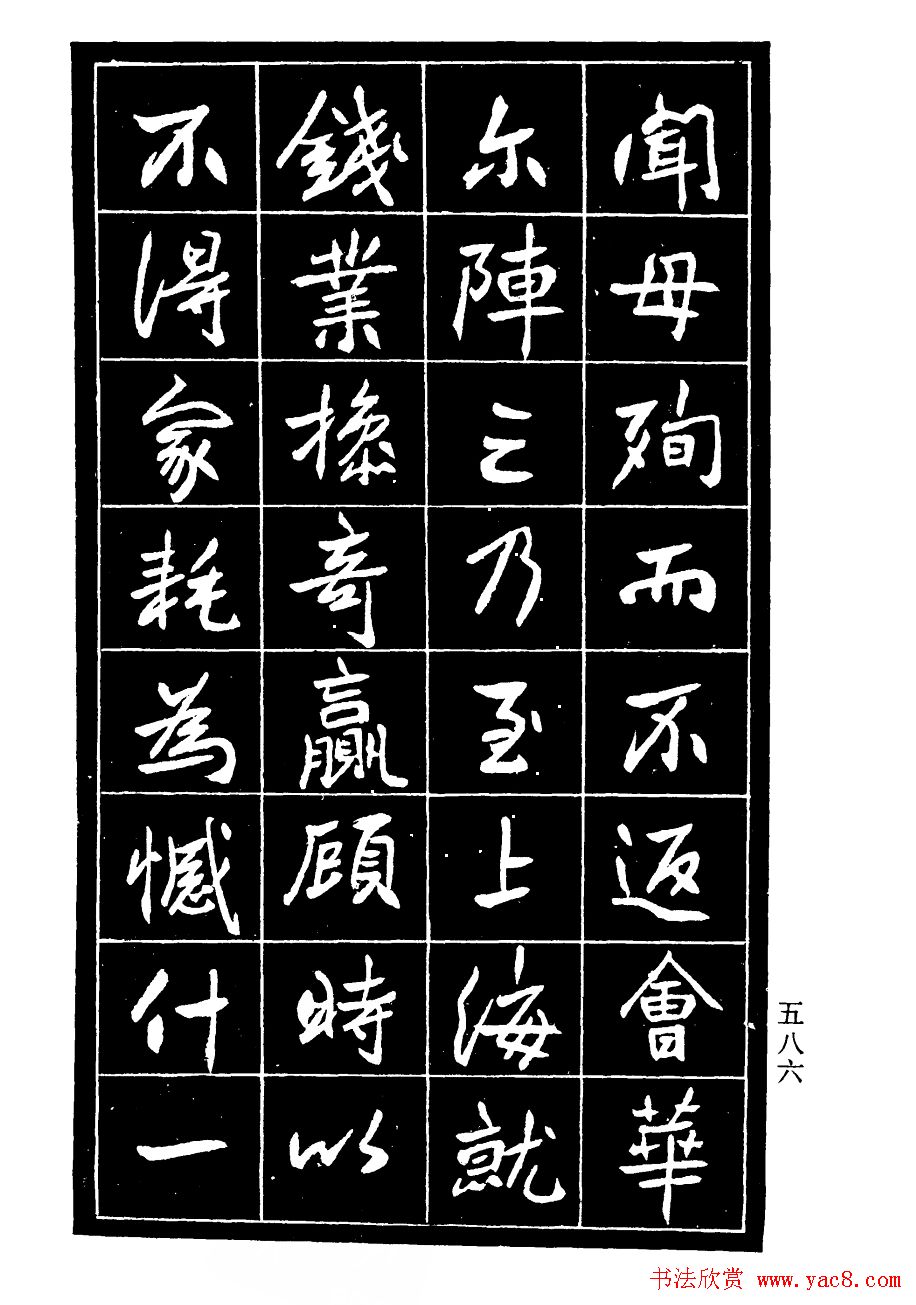 聞母殉而不返會華
尓陣亡乃至上海就
錢業操奇贏顧時以
不得家耗為憾什一
五八六
书法欣赏 www.yac8.com